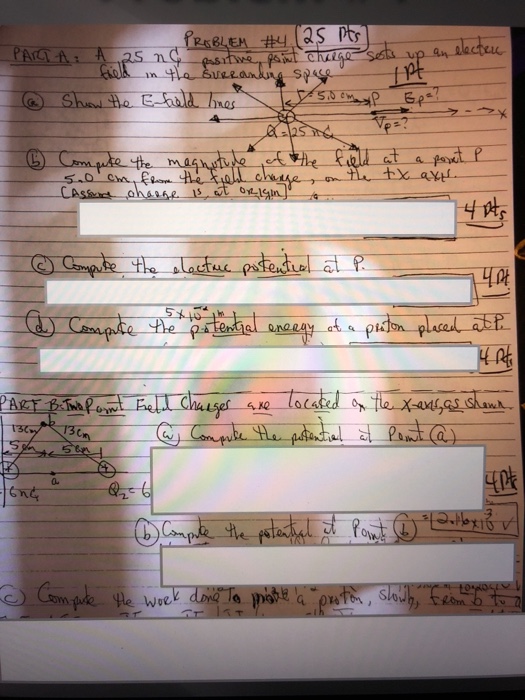 PROBLEM #4 (25 Pts)
PART A: A 25 nC positive point charge sets up an electric
field in the surrounding space
1 Pt
(a) Show the E-field lines
r=5.0 cm P Ep=?
x
Vp=?
Q=25 nC
(b) Compute the magnitude of the field at a point P
5.0 cm from the field charge, on the +x axis.
[Assume charge is at origin]
4 Pts
(c) Compute the electric potential at P.
4 Pt
(d) Compute the potential energy of a proton placed at P.
4 Pts
PART B: Two Point Field Charges are located on the x-axis, as shown
13cm 13cm
(a) Compute the potential at Point (a)
5cm 5cm
a
6nC Q2=6
4 Pts
(b) Compute the potential at Point (b) = 2.16x10³ V
(c) Compute the work done to a proton, slowly, from b to a